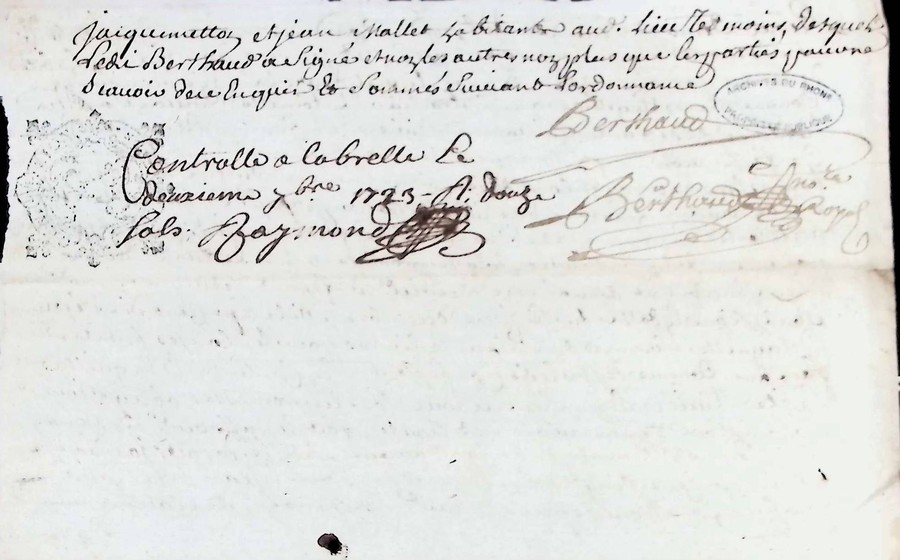 Jacquemettoz et jean Mallet habitants aud. Lieu Temoins, desquels
Ledi Berthaud a Signé et non les autres non plus que les parties pour ne
Scavoir de ce Enquis Et Sommés Suivant Lordonnance
Berthaud
ARCHIVES DU RHONE
PROPRIÉTÉ PUBLIQUE
Controlle a Labrelle Le
deuxieme 7bre 1723 - R. douze
sols. Raymond
Berthaud No.re Royal